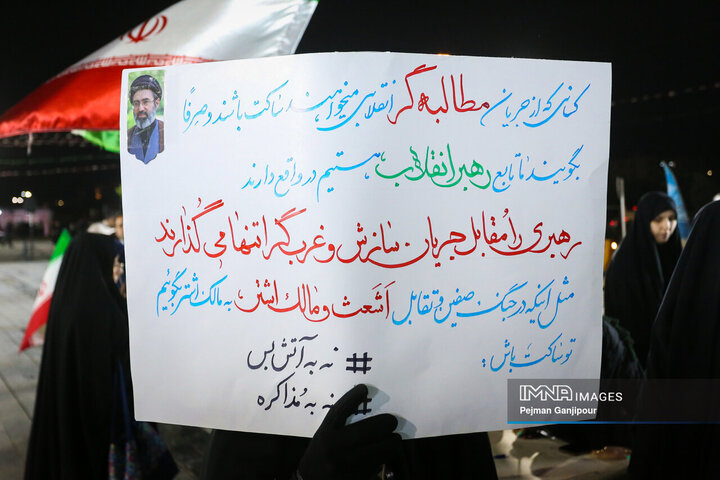 کسانی که از جریان مطالبه‌گر انقلابی میخواهند ساکت باشند و صِرفاً
بگویند ما تابع رهبر انقلاب هستیم در واقع دارند
رهبری را مقابل جریان سازش و غرب گرا تنها می گذارند
مثل اینکه در جنگ صفین و تقابل اَشعَث و مالک اشتر، به مالک اشتر بگوئیم
تو ساکت باش!
# نه به آتش بس
# نه به مُذاکره
IMNA IMAGES
Pejman Ganjipour